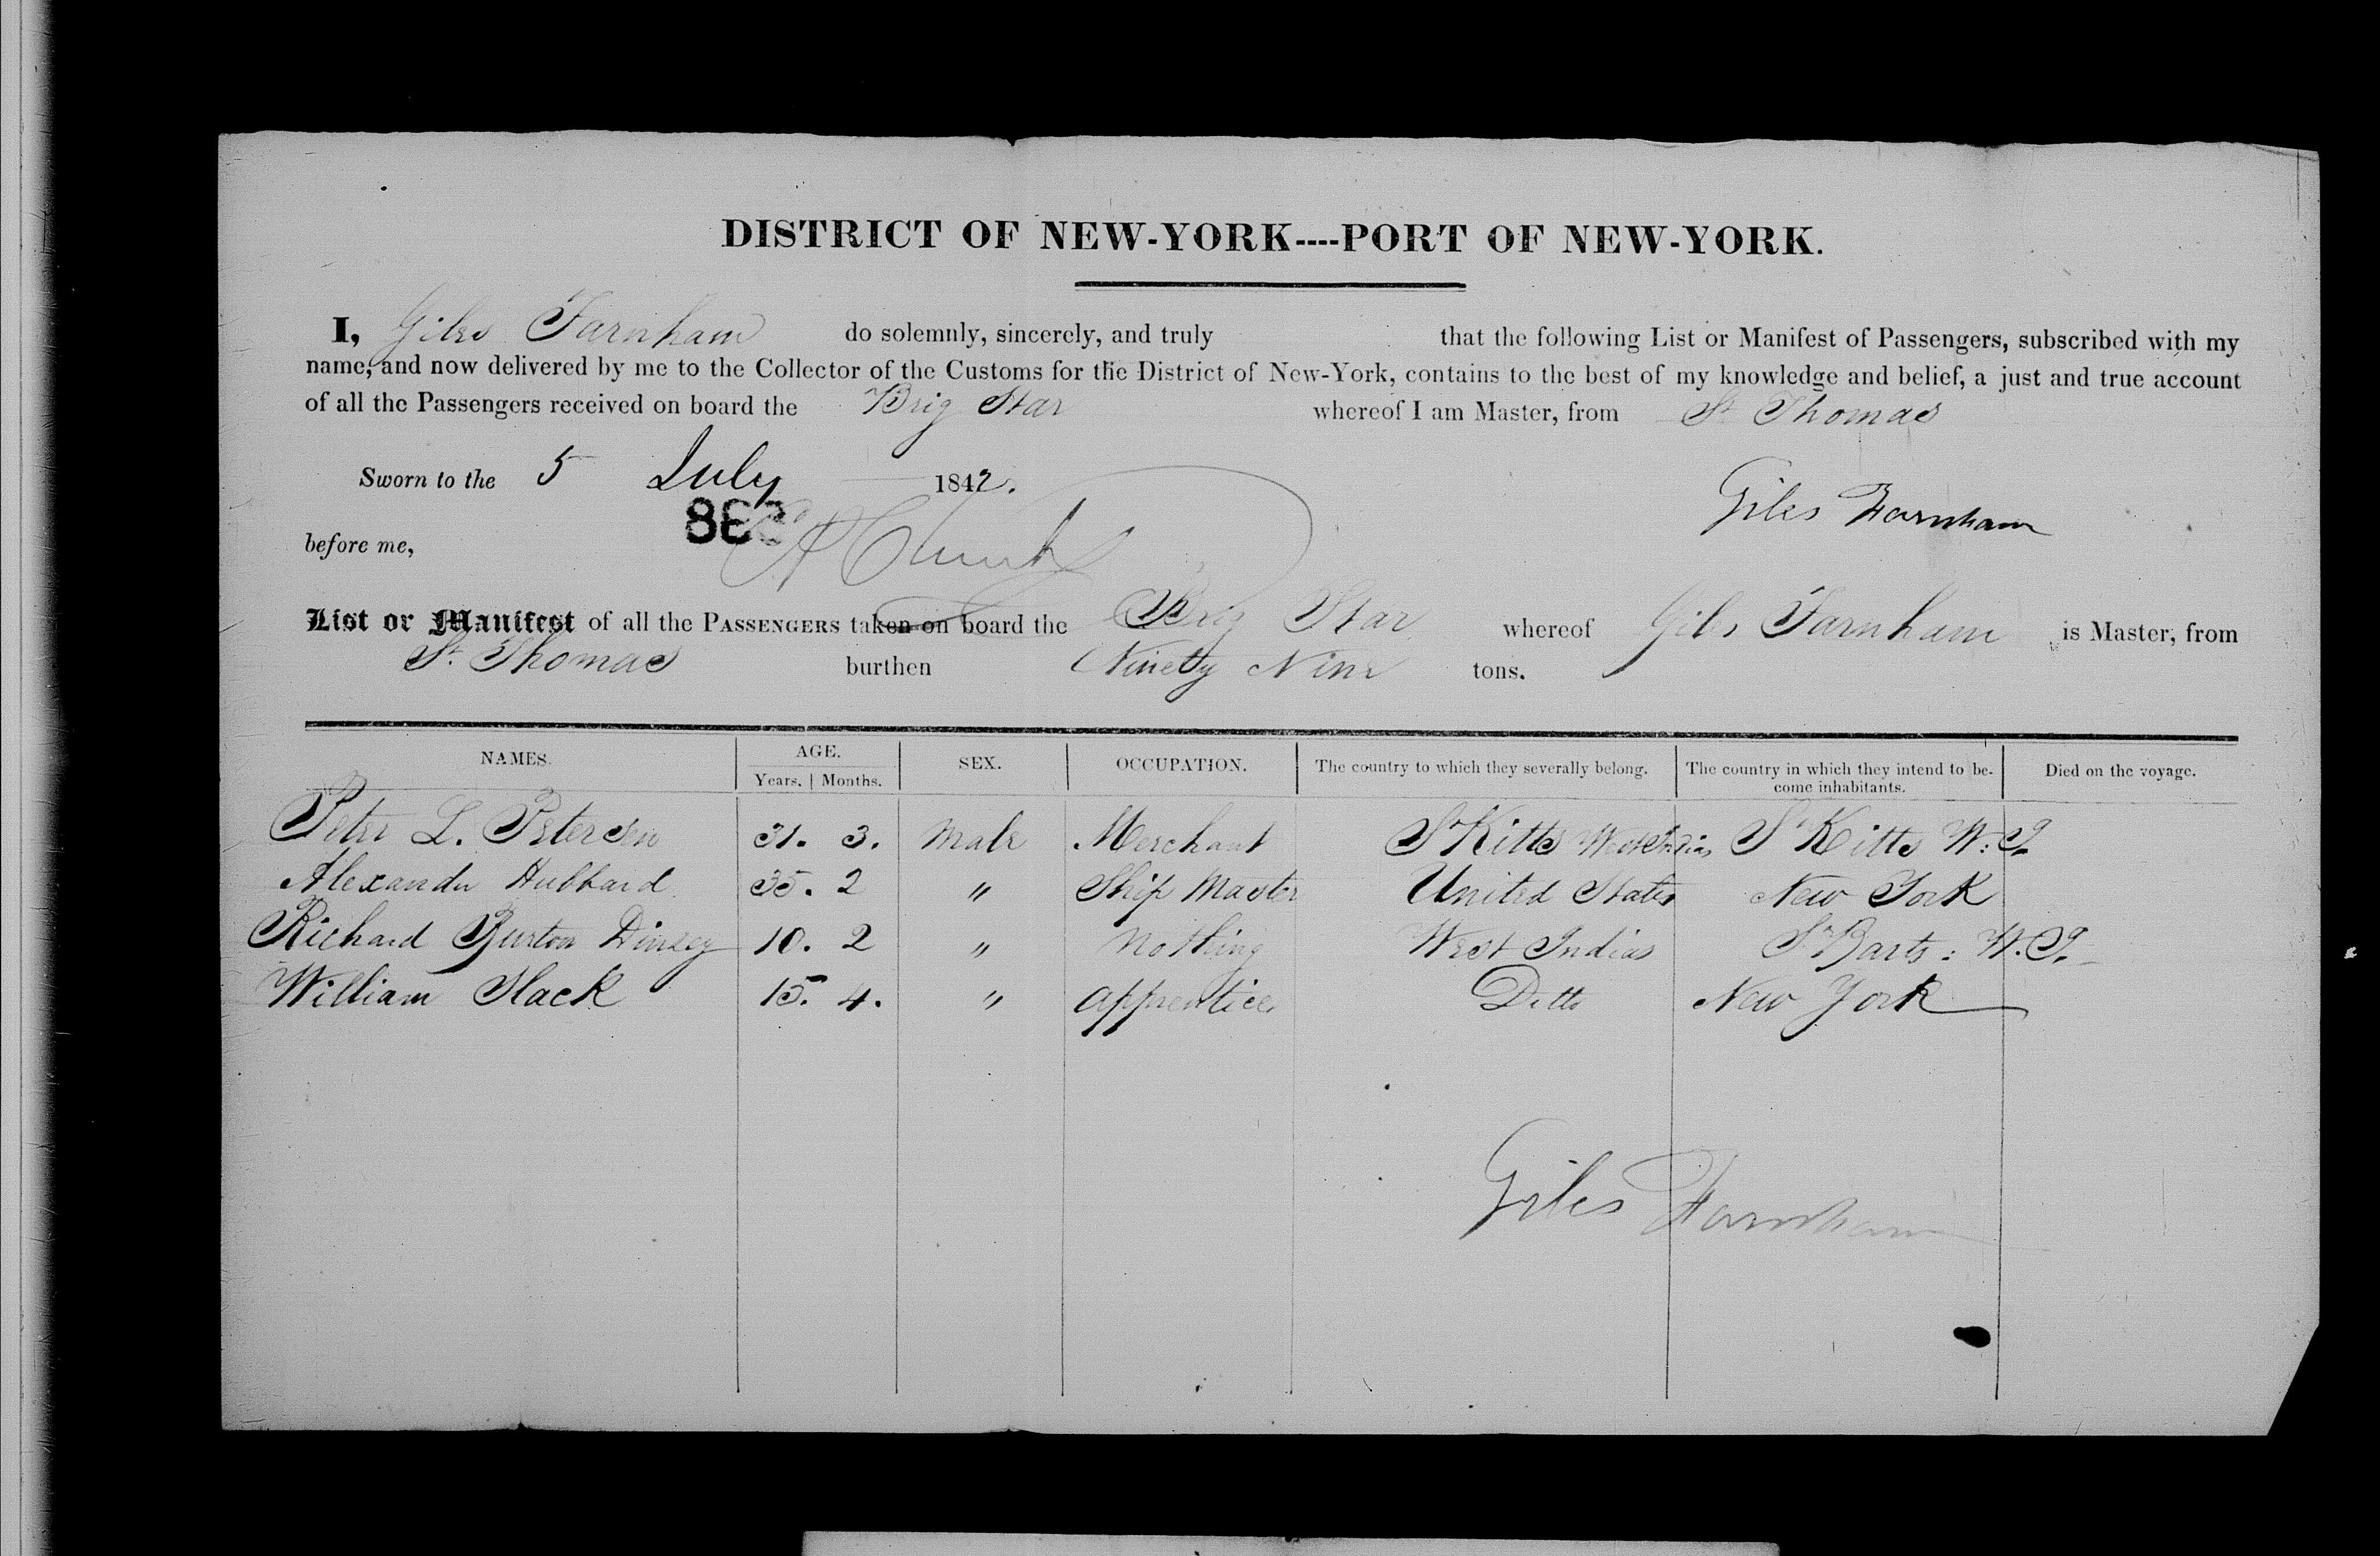 DISTRICT OF NEW-YORK----PORT OF NEW-YORK.
I, Giles Farnham do solemnly, sincerely, and truly that the following List or Manifest of Passengers, subscribed with my
name, and now delivered by me to the Collector of the Customs for the District of New-York, contains to the best of my knowledge and belief, a just and true account
of all the Passengers received on board the Brig Star whereof I am Master, from St Thomas
Sworn to the 5 July 1842.
Giles Farnham
before me,
List or Manifest of all the PASSENGERS taken on board the Brig Star whereof Giles Farnham is Master, from
St. Thomas burthen Ninety Nine tons.
NAMES. AGE. SEX. OCCUPATION. The country to which they severally belong. The country in which they intend to be- Died on the voyage.
Years. Months. come inhabitants.
Peter L. Petersen 31. 3. Male Merchant St Kitts West Indias St Kitts W: I.
Alexander Hubbard 35. 2 " Ship Master United States New York
Richard Burton Dinzey 10. 2 " Nothing West Indias St Barts: W. I.
William Slack 15. 4. " apprentice Ditto New York
Giles Farnham